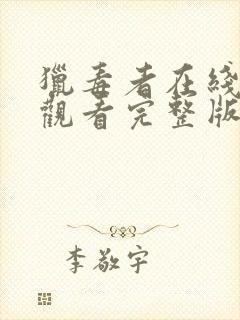 獵毒者在綫
觀看完整版
李敬宇